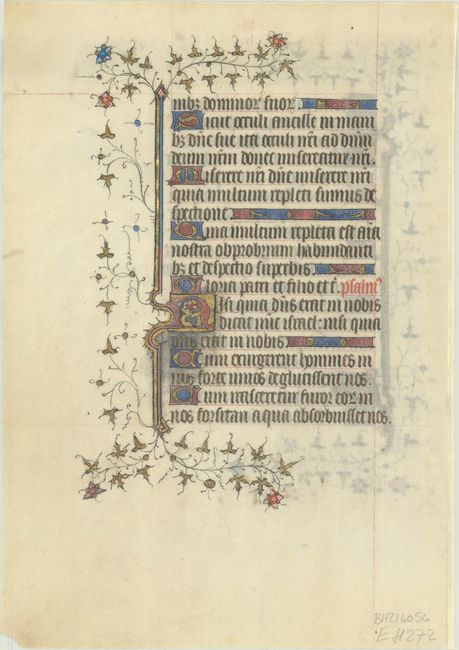 nibz dominor suor
Sicut occuli ancille in mani
bz dne sue ita occuli nri ad dnm
deum nrm donec misereatur nri.
Miserere nri dne miserere nri
quia multum repleti sumus de
spectione
Quia multum repleta est aīa
nostra obprobrium habundanti
bz et despectio superbis.
Gloria patri et filio et s. psalm9
Nisi quia dns erat in nobis
dicat nuc israel: nisi quia
dns erat in nobis
Cum exurgerent homines in
nos forte uiuos deglutissent nos.
Cum irasceretur furor eor in
nos forsitan aqua absorbuisset nos.
BHZ16056
E H272